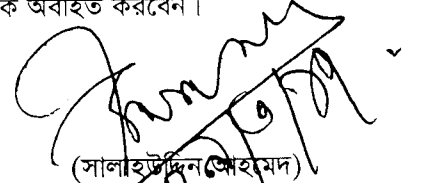 ক অবহিত করবেন।
(সালাহউদ্দিন আহমেদ)